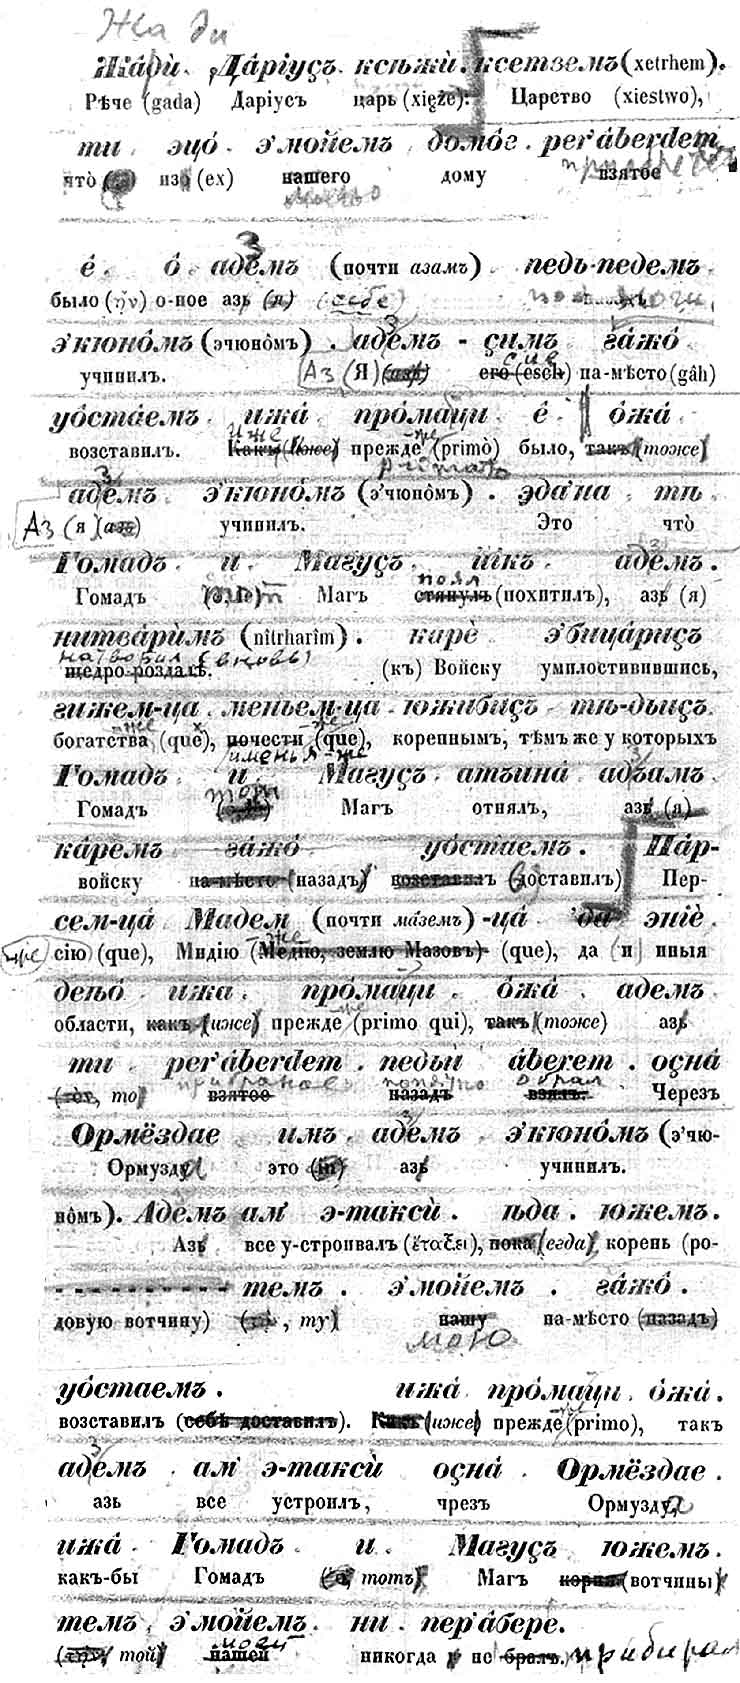 Жа ди
Жа́ди̇̀. Да́ріуҫъ ксѣжи̇̀. ксетзѐмъ (xetrhem).
Рѣче (gada) Даріусъ царь (xięże): Царство (xiestwo),
ти эцо́ э'мойемъ домо́г. per'áberdem
что̀ изъ (ex) нашего дому взятое
моего
е́ о́ адемъ (почти азамъ) педь-педемъ
было (ἦν) о-ное азь (я) (себе)
э'кюно̂мъ (эчюно̂мъ). адемъ - ҫимъ га́жо́
учинилъ. Аз (Я) его (esch) на-мѣсто (gâh)
уо́стаемъ ижа́ про́маци е́ о́жа́
иже
возставилъ. Какъ (иже) прежде (primò) было, такъ (тоже)
адемъ э'кюно̂мъ (э'чюно̂мъ). эда'на тѣ
Аз (я) учинилъ. Это что̀
Гомадъ и Магуҫъ йікъ адемъ.
поял
Гомадъ Магъ стянулъ (похитилъ), азь (я)
нитва́ри̇̀мъ (nîtrharîm). каре̇̀ э'бица́риҫъ
натворил (вновь)
щедро-роздалъ. (къ) Войску умилостивившись,
гижем-ца меньем-ца южибиҫъ тѣ-дьиҫъ
богатства (que), почести (que), кореннымъ, тѣмъ же у которыхъ
именья-же
Гомадъ и Магуҫъ атъина́ адъамъ.
тот
Гомадъ Магъ отнялъ, азь (я)
ка́ремъ га́жо́ уо́стаемъ. Па́р-
войску на-мѣсто (назадъ) возставилъ (доставилъ) Пер-
сем-ца́ Мадем (почти ма́земъ) -ца́ 'да эніе̇̀
же сію (que), Мидію (Медію, землю Мазовъ) (que), да и иныя
деньо́ ижа. про́маци. о́жа́ адемъ
области, какъ (иже) прежде (primo qui), такъ (тоже) азь
ти per'áberdem педьи áberem. оҫна́
то взятое назадъ взялъ. Черезъ
Ормёздае имъ адемъ э'кюно̂мъ (э'чю-
Ормузду это азь учинилъ.
но̂мъ). Адемъ ам' э-такси̇̀. ѣда. южемъ.
Азь все у-строивалъ (ἐταξει), пока (егда) корень (ро-
темъ э'мойемъ га́жо́.
довую вотчину) ту) нашу на-мѣсто (назадъ)
мою
уо́стаемъ. ижа́ про́маци о́жа́.
возставилъ (себѣ доставилъ). Какъ (иже) прежде (primo), такъ
адемъ ам' э-такси̇̀ оҫна́ Ормёздае.
азь все устроилъ, чрезъ Ормузду
ижа́ Гомадъ и Магуҫъ южемъ.
какъ-бы Гомадъ тотъ) Магъ корня (вотчины)
темъ э'мойемъ ни пер'а́бере.
моей
той) нашей никогда не бралъ.